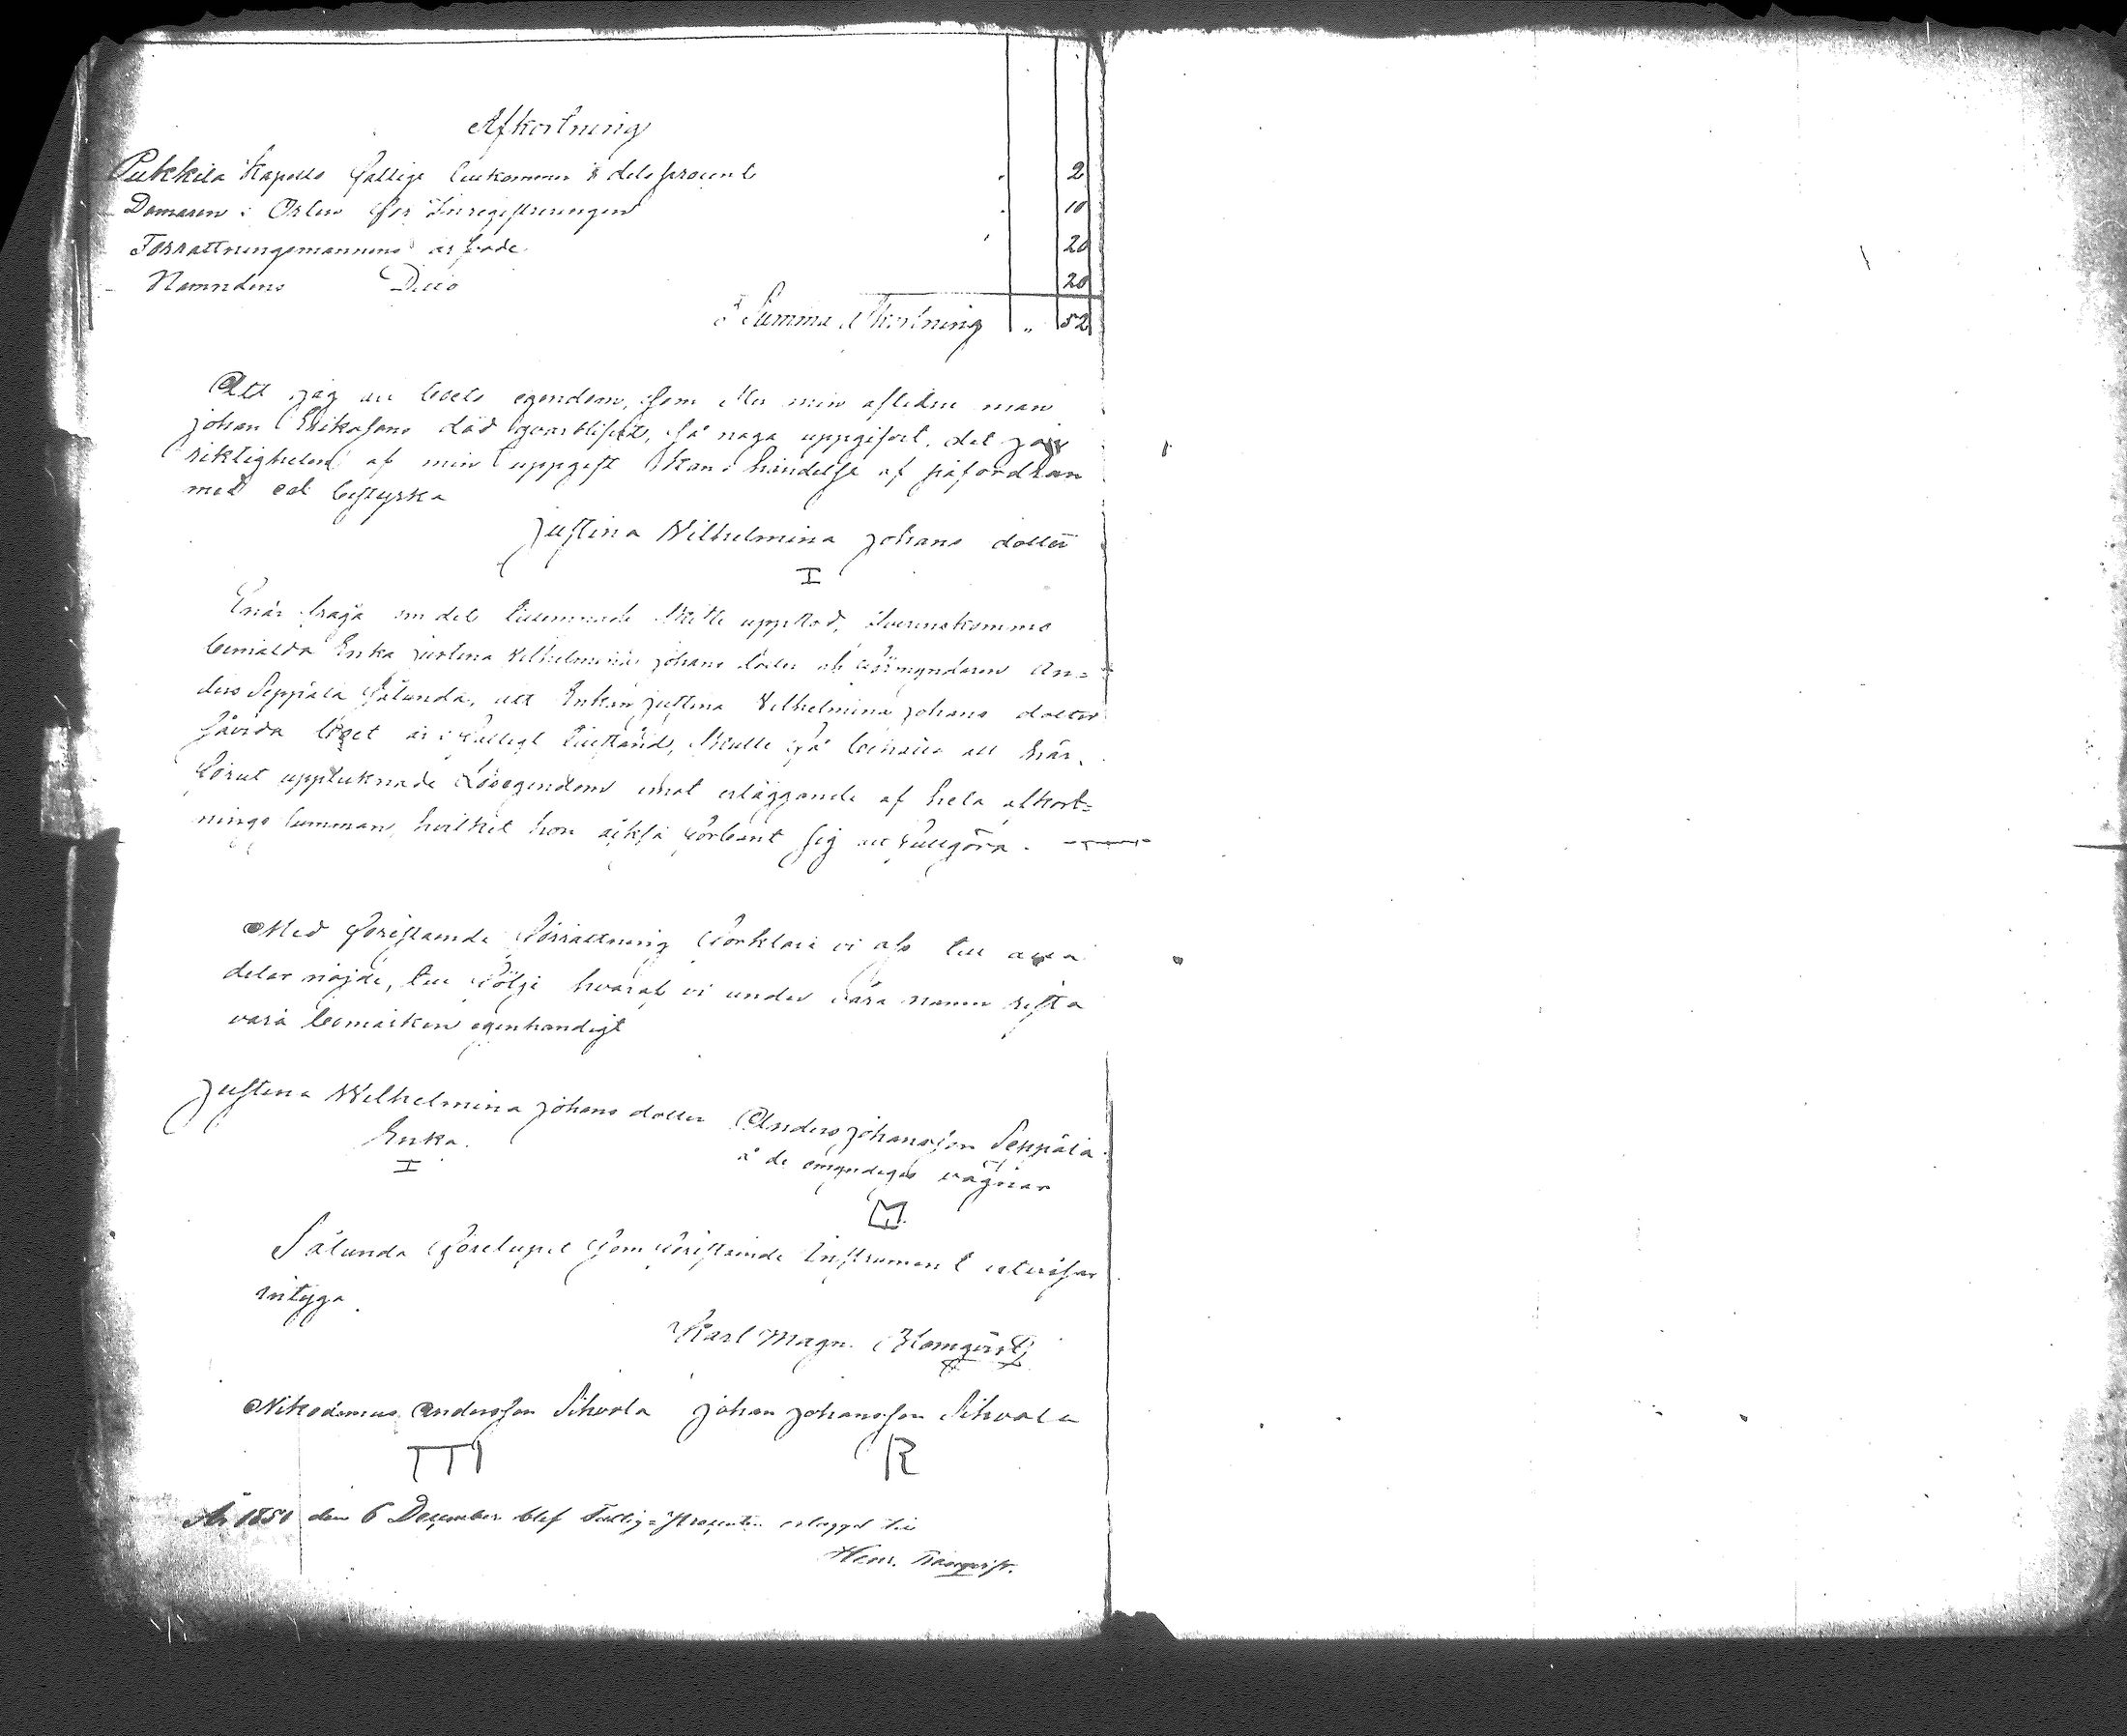 Afkortning
Pukkila Kapells fattige tillkommer ⅛ dels procent " 2
Domaren i Orten för Inregistreringen " 10
Förrattningsmannens arfvode " 20
Namndens Dito 20
S Summa Afkortning " 52
Att jag all boets egendom, som efter min aflidne man
johan Eriksons död qvarblifvit, så noga uppgifvit, det jag
riktigheten af min uppgift kan i händelse af påfordran
med ed bestyrka
justina Wilhelmina johans dotter
I
Enär fråga om det tillernade skifte uppstod, öfverenskommo
bemälda Enka justina Wilhelmina johans dotter och förmyndaren An=
ders Seppälä sålunda, att Enkan justina Wilhelmina johans dotter
såvida boet är i fattigt tillstånd, skulle få behålla all här
förut uppräknade Lösegendom emot erläggande af hela afkort=
nings summan, hvilket hon äfven förbant sig att fullgöra.
Med föreståande förrattning förklare vi oss till alla
delar nöjde, till följe hvaraf vi under våra namn rista
våra bomärken egenhändigt
justina Wilhelmina johans dotter Anders johansson Seppälä
Enka. å de omyndigas vägnar
I
Sålunda förelupit som föreståande Instrument utvisar
intyga
Karl Magn. Blomqvist
Nikodemus Andersson Sihvola johan johansson Sihvola
R
År 1851 den 6 December blef Fattig=procenten erlaggd till
Henr.